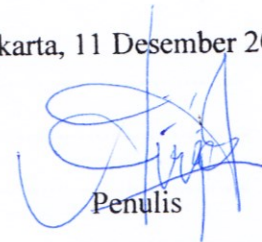 karta, 11 Desember 20
Penulis